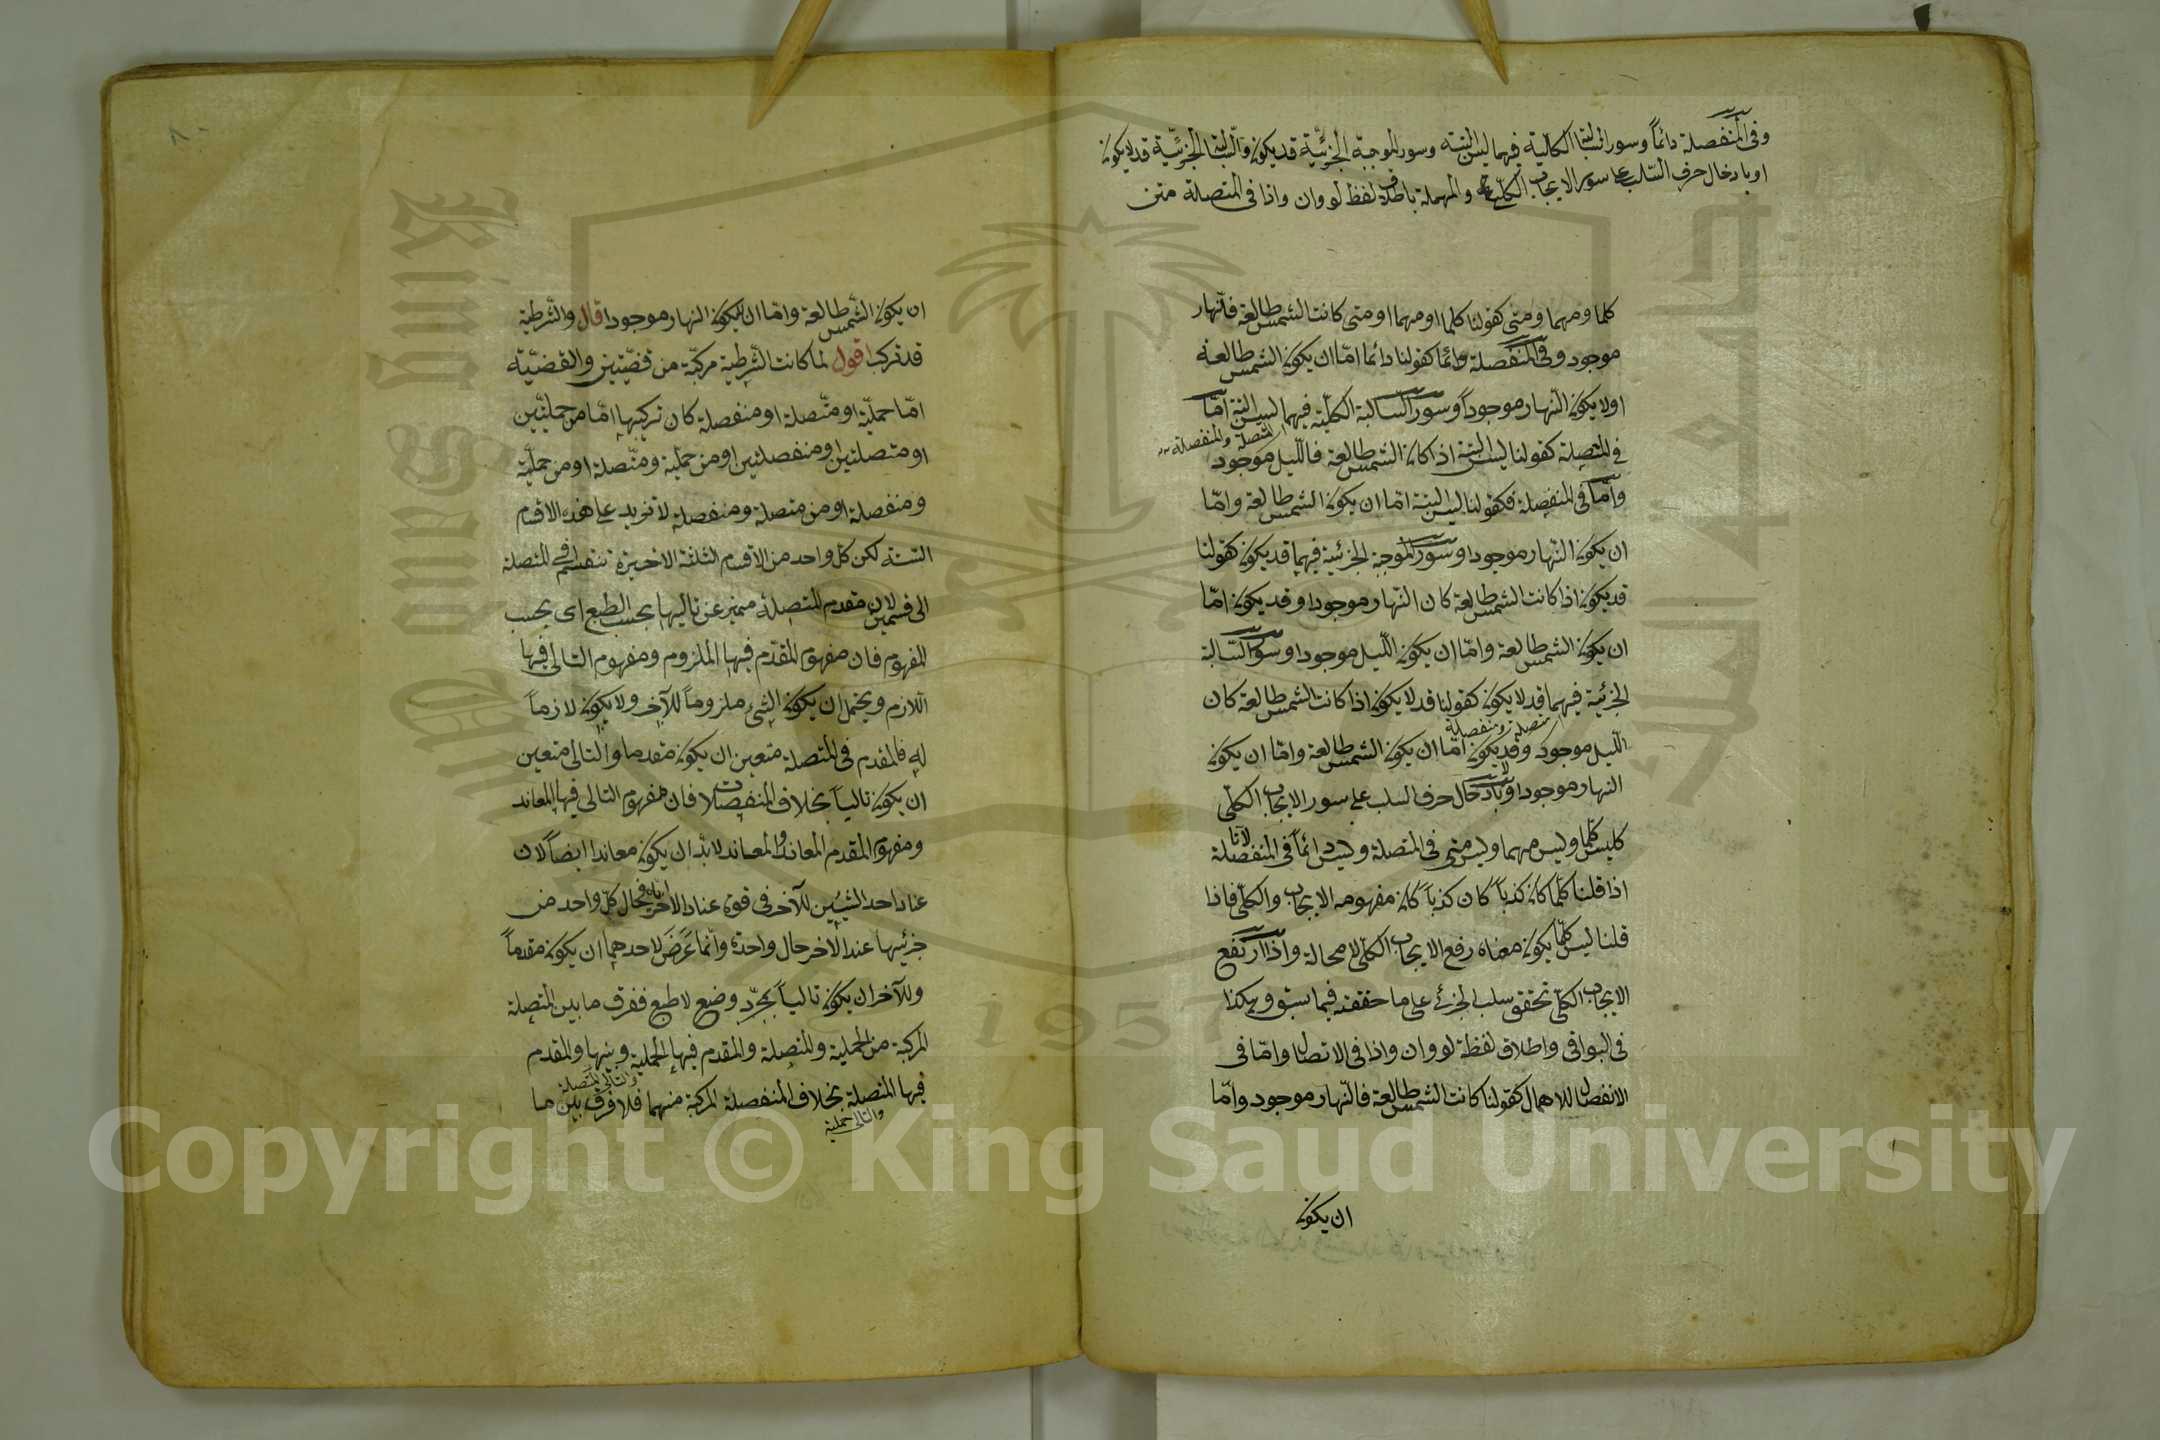 وفى المنفصلة دائماً وسور السالبة الكلية فيهما ليس البتة وسور الموجبة الجزئية قد يكون والسالبة الجزئية قد لا يكون
او بادخال حرف السلب على سور الايجاب الكلى والمهملة باطلاق لفظ لو وان واذا فى المتصلة متن
كلما ومهما ومتى كقولنا كلما او مهما او متى كانت الشمس طالعة فالنهار
موجود وفى المنفصلة دائما كقولنا دائما امّا ان يكون الشمس طالعة
او لا يكون النّهار موجوداً وسور السالبة الكلّية فيهما ليس البتة امّا
المتصلة والمنفصلة
فى المتصلة كقولنا ليس البتة اذا كان الشمس طالعة فاللّيل موجود
وامّا فى المنفصلة فكقولنا ليس البتة امّا ان يكون الشمس طالعة وامّا
ان يكون النّهار موجودا وسور الموجبة الجزئية فيهما قد يكون كقولنا
قد يكون اذا كانت الشمس طالعة كان النّهار موجودا وقد يكون امّا
ان يكون الشمس طالعة وامّا ان يكون اللّيل موجودا وسور السّالبة
الجزئية فيهما قد لا يكون كقولنا قد لا يكون اذا كانت الشمس طالعة كان
متصلة ومنفصلة
اللّيل موجود وقد لا يكون امّا ان يكون الشمس طالعة وامّا ان يكون
النهار موجودا وبادخال حرف السلب على سور الايجاب الكلّى
كليس كلّما وليس مهما وليس متى فى المتصلة وليس دائماً فى المنفصلة لانا
اذا قلنا كلّما كان كذباً كان كذباً كان مفهومه الايجاب والكلّى فاذا
قلنا ليس كلّما يكون معناه رفع الايجاب الكلّى لا محالة واذا ارتفع
الايجاب الكلّى تحقق سلب الجزئى على ما حققته فيما سبق وهكذا
فى البواقى واطلاق لفظة لو وان واذا فى الاتصال وامّا فى
الانفصال للاهمال كقولنا كانت الشمس طالعة فالنّهار موجود وامّا
ان يكون
٨٠
ان يكون الشّمس طالعة وامّا ان لا يكون النهار موجودا قال والشّرطية
قد تركب اقول لما كانت الشّرطية مركبّة من قضيّتين والقضيّة
امّا حمليّة او متّصلة او منفصلة كان تركيبها امّا من حمليّتين
او متصلتين او منفصلتين او من حملية ومتّصلة او من حمليّة
ومنفصلة او من متصلة ومنفصلة لا تزيد على هذه الاقسام
الستة لكن كل واحد من الاقسام الثلثة الاخيرة تنقسم فى المتصلة
الى قسمين لان مقدم المتصلة متميز عن تاليها بحسب الطبع اى بحسب
المفهوم فان مفهوم المقدّم فيها الملزوم ومفهوم التالى فيها
اللّازم ويحتمل ان يكون الشئ ملزوماً للآخر ولا يكون لازماً
له فالمقدم فى المتصلة متعين ان يكون مقدما والتالى متعين
ان يكون تالياً بخلاف المنفصلات فان مفهوم التالى فيها المعاند
ومفهوم المقدم المعاند والمعاند لا بدّ ان يكون معاندا ايضاً لان
عناد احد الشيئين للآخر فى قوة عناد الآخر اياه فحال كل واحد من
جزئيها عند الآخر حال واحدة وانّما عَرَضَ لاحدهما ان يكون مقدماً
وللآخر ان يكون تالياً بمجرّد وضع لا طبع ففرق ما بين المتصلة
المركبة من الحملية والمتصلة والمقدم فيها الحملية وبينها والمقدم
والتالى المتصلة
فيها المتصلة بخلاف المنفصلة المركبة منهما فلا فرق بين ما
والتالى حملية
King Saud University
1957
Copyright © King Saud University